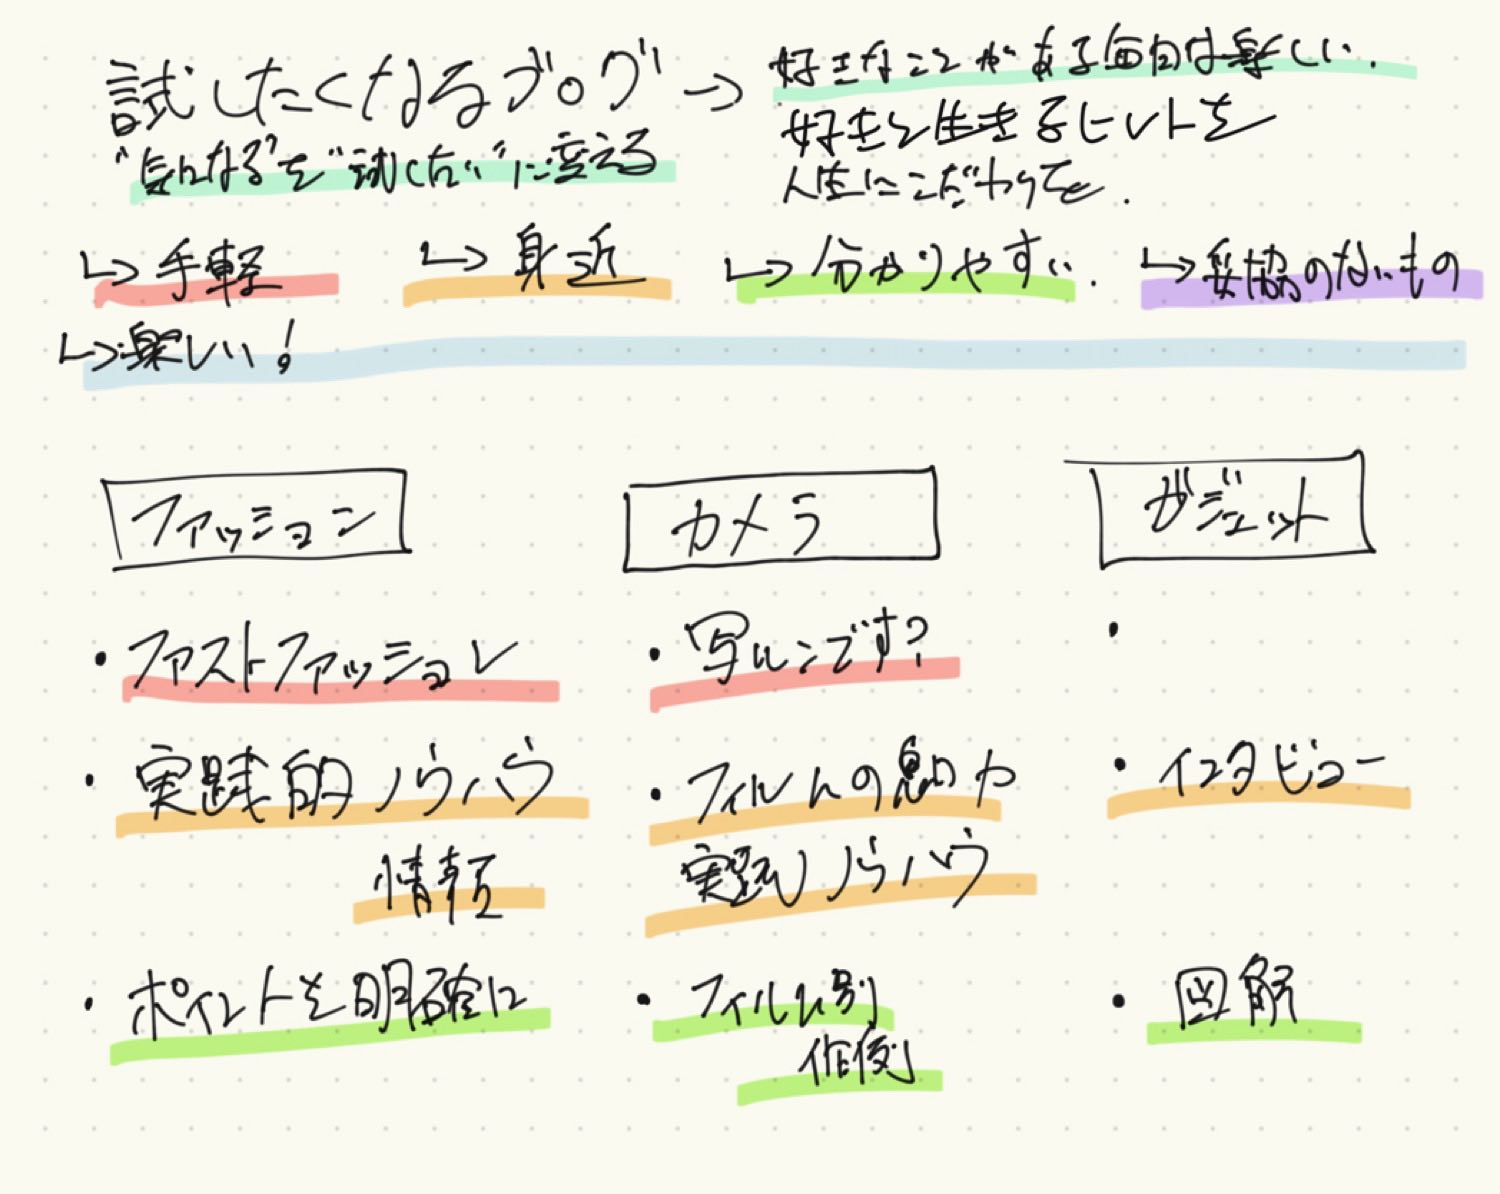 試したくなるブログ →
好きなことがある毎日は楽しい.
好きと生きるヒントを
人生にこだわりを.
"気になる"を"試したい"に変える
↳ 手軽
↳ 身近
↳ 分かりやすい.
↳ 妥協のないもの
↳ 楽しい!
ファッション
・ファストファッション
・実践的ノウハウ
情報
・ポイントを明確に
カメラ
・写ルンです?
・フィルムの魅力
実践ノウハウ
・フィルム別
作例
ガジェット
・
・インタビュー
・図解